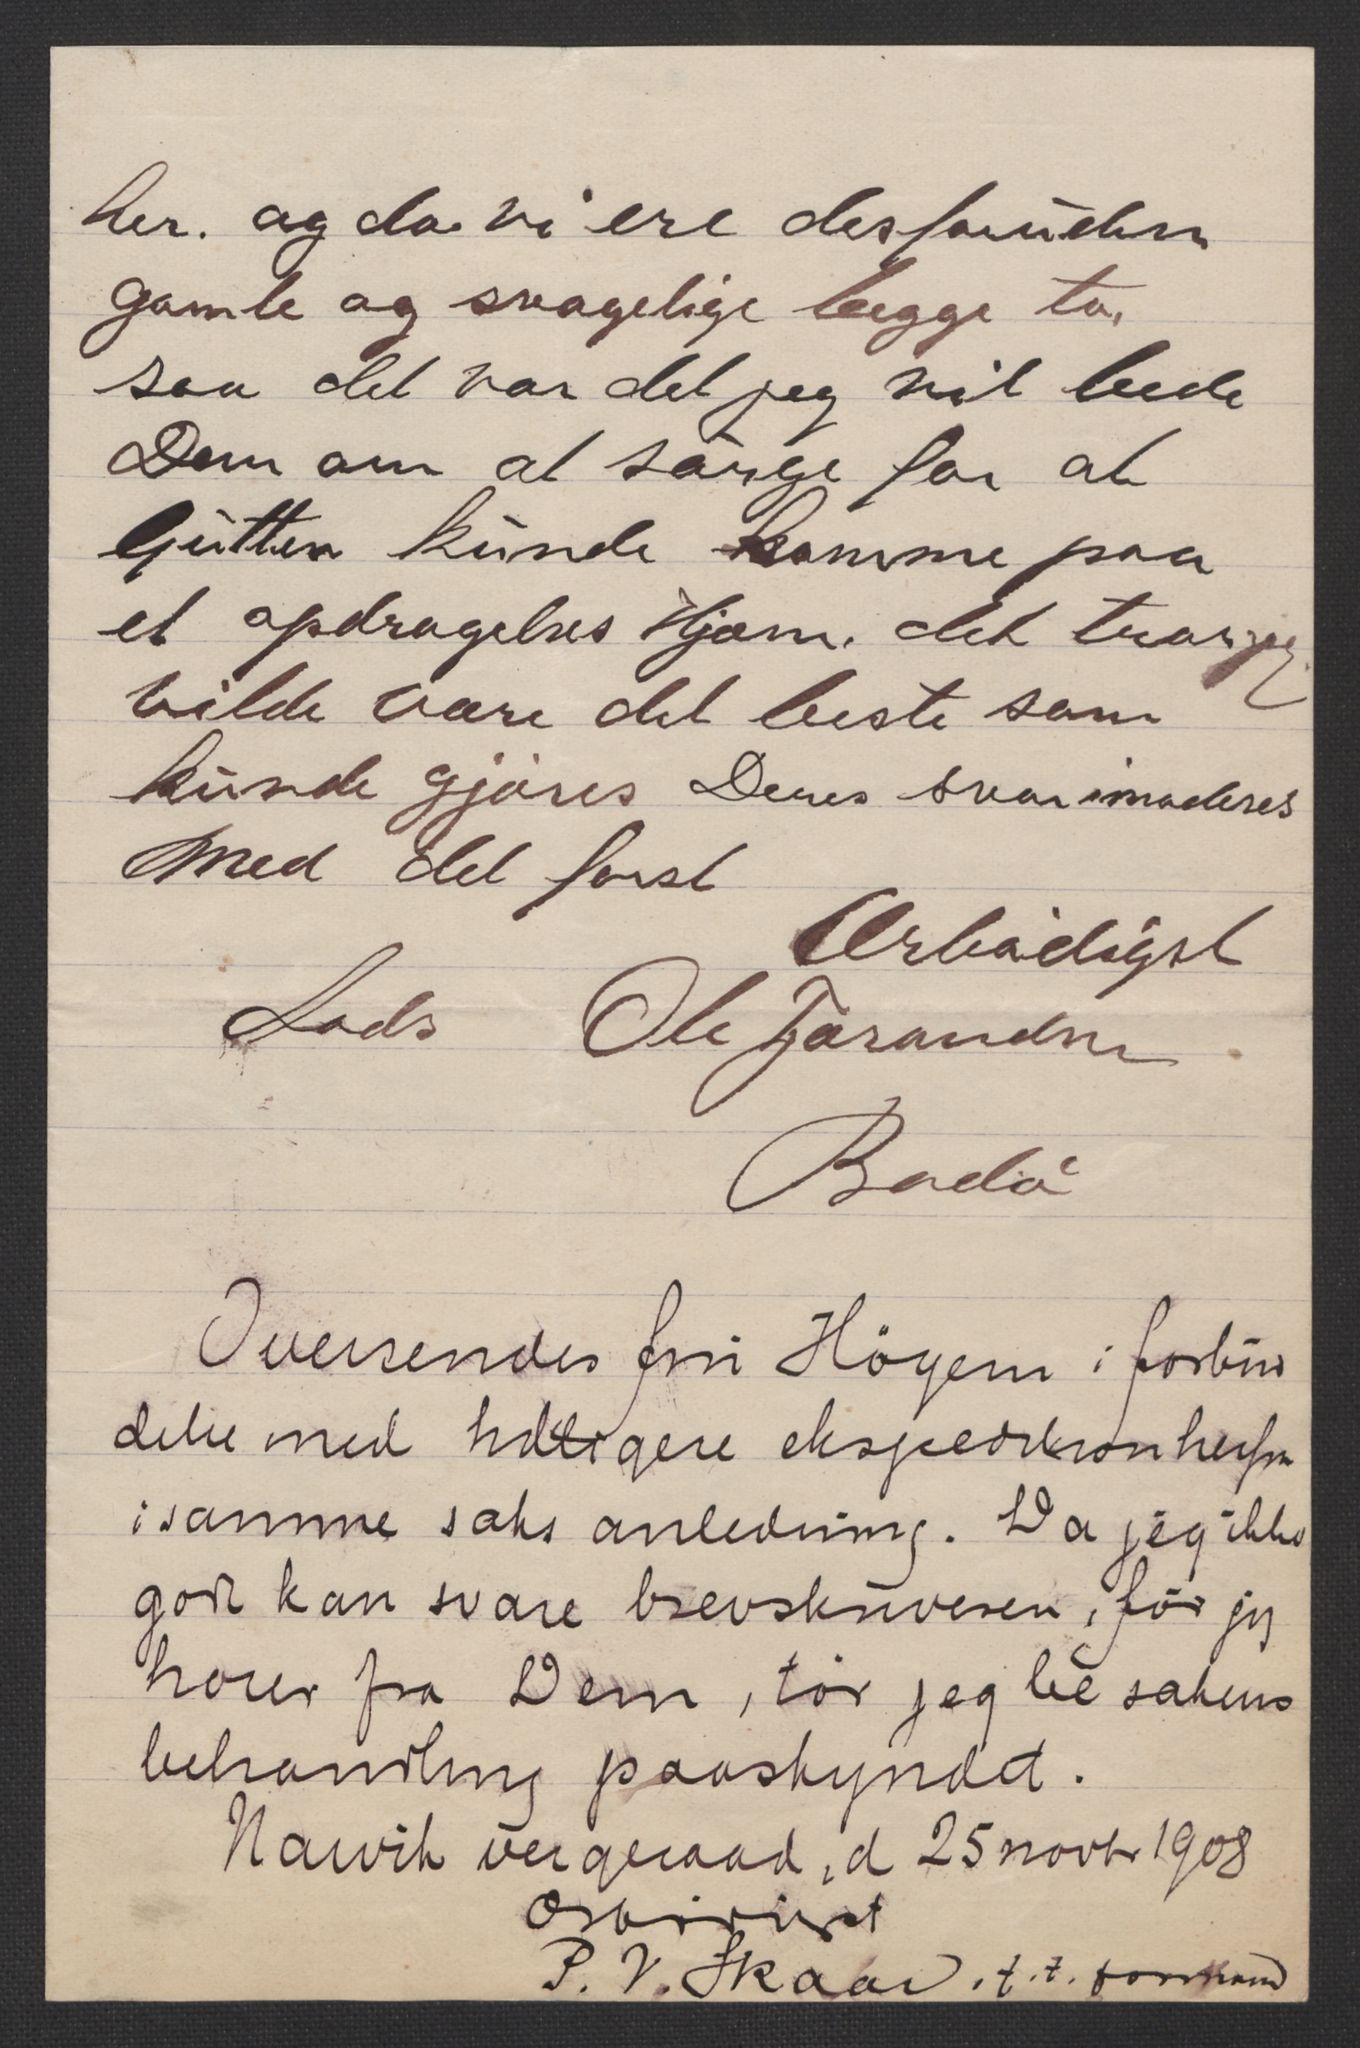 her. og da vi ere desforuden
gamle og svagelige begge to,
saa det var det jeg vil bede
Dem om at sörge for at
Gutten kunde komme paa
et opdragelses Hjem. det tror jeg
vilde være det beste som
kunde gjöres Deres svar imøderes
Med det først
Ærbödigst
Lods Ole Torandsen
Bodö
Oversendes fru Högem i forbin
delse med tidligere ekspedition herfra
i samme saks anledning. Da jeg ikke
godt kan svare brevskriveren, för jeg
hører fra Dem, tör jeg be sakens
behandling paaskyndet.
Narvik vergeraad, d 25 novbr 1908
Ærbødigst
P. V. Skaar, f.t. formand